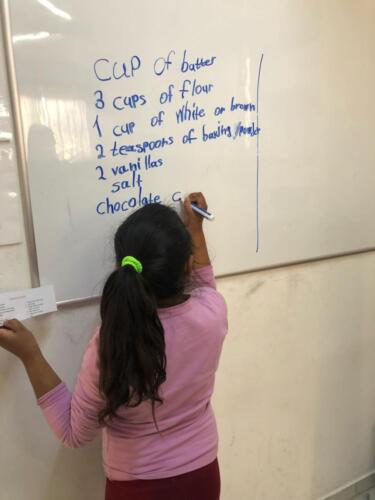 cup of butter
3 cups of flour
1 cup of white or brown
2 teaspoons of baking powder
2 vanillas
salt
chocolate c